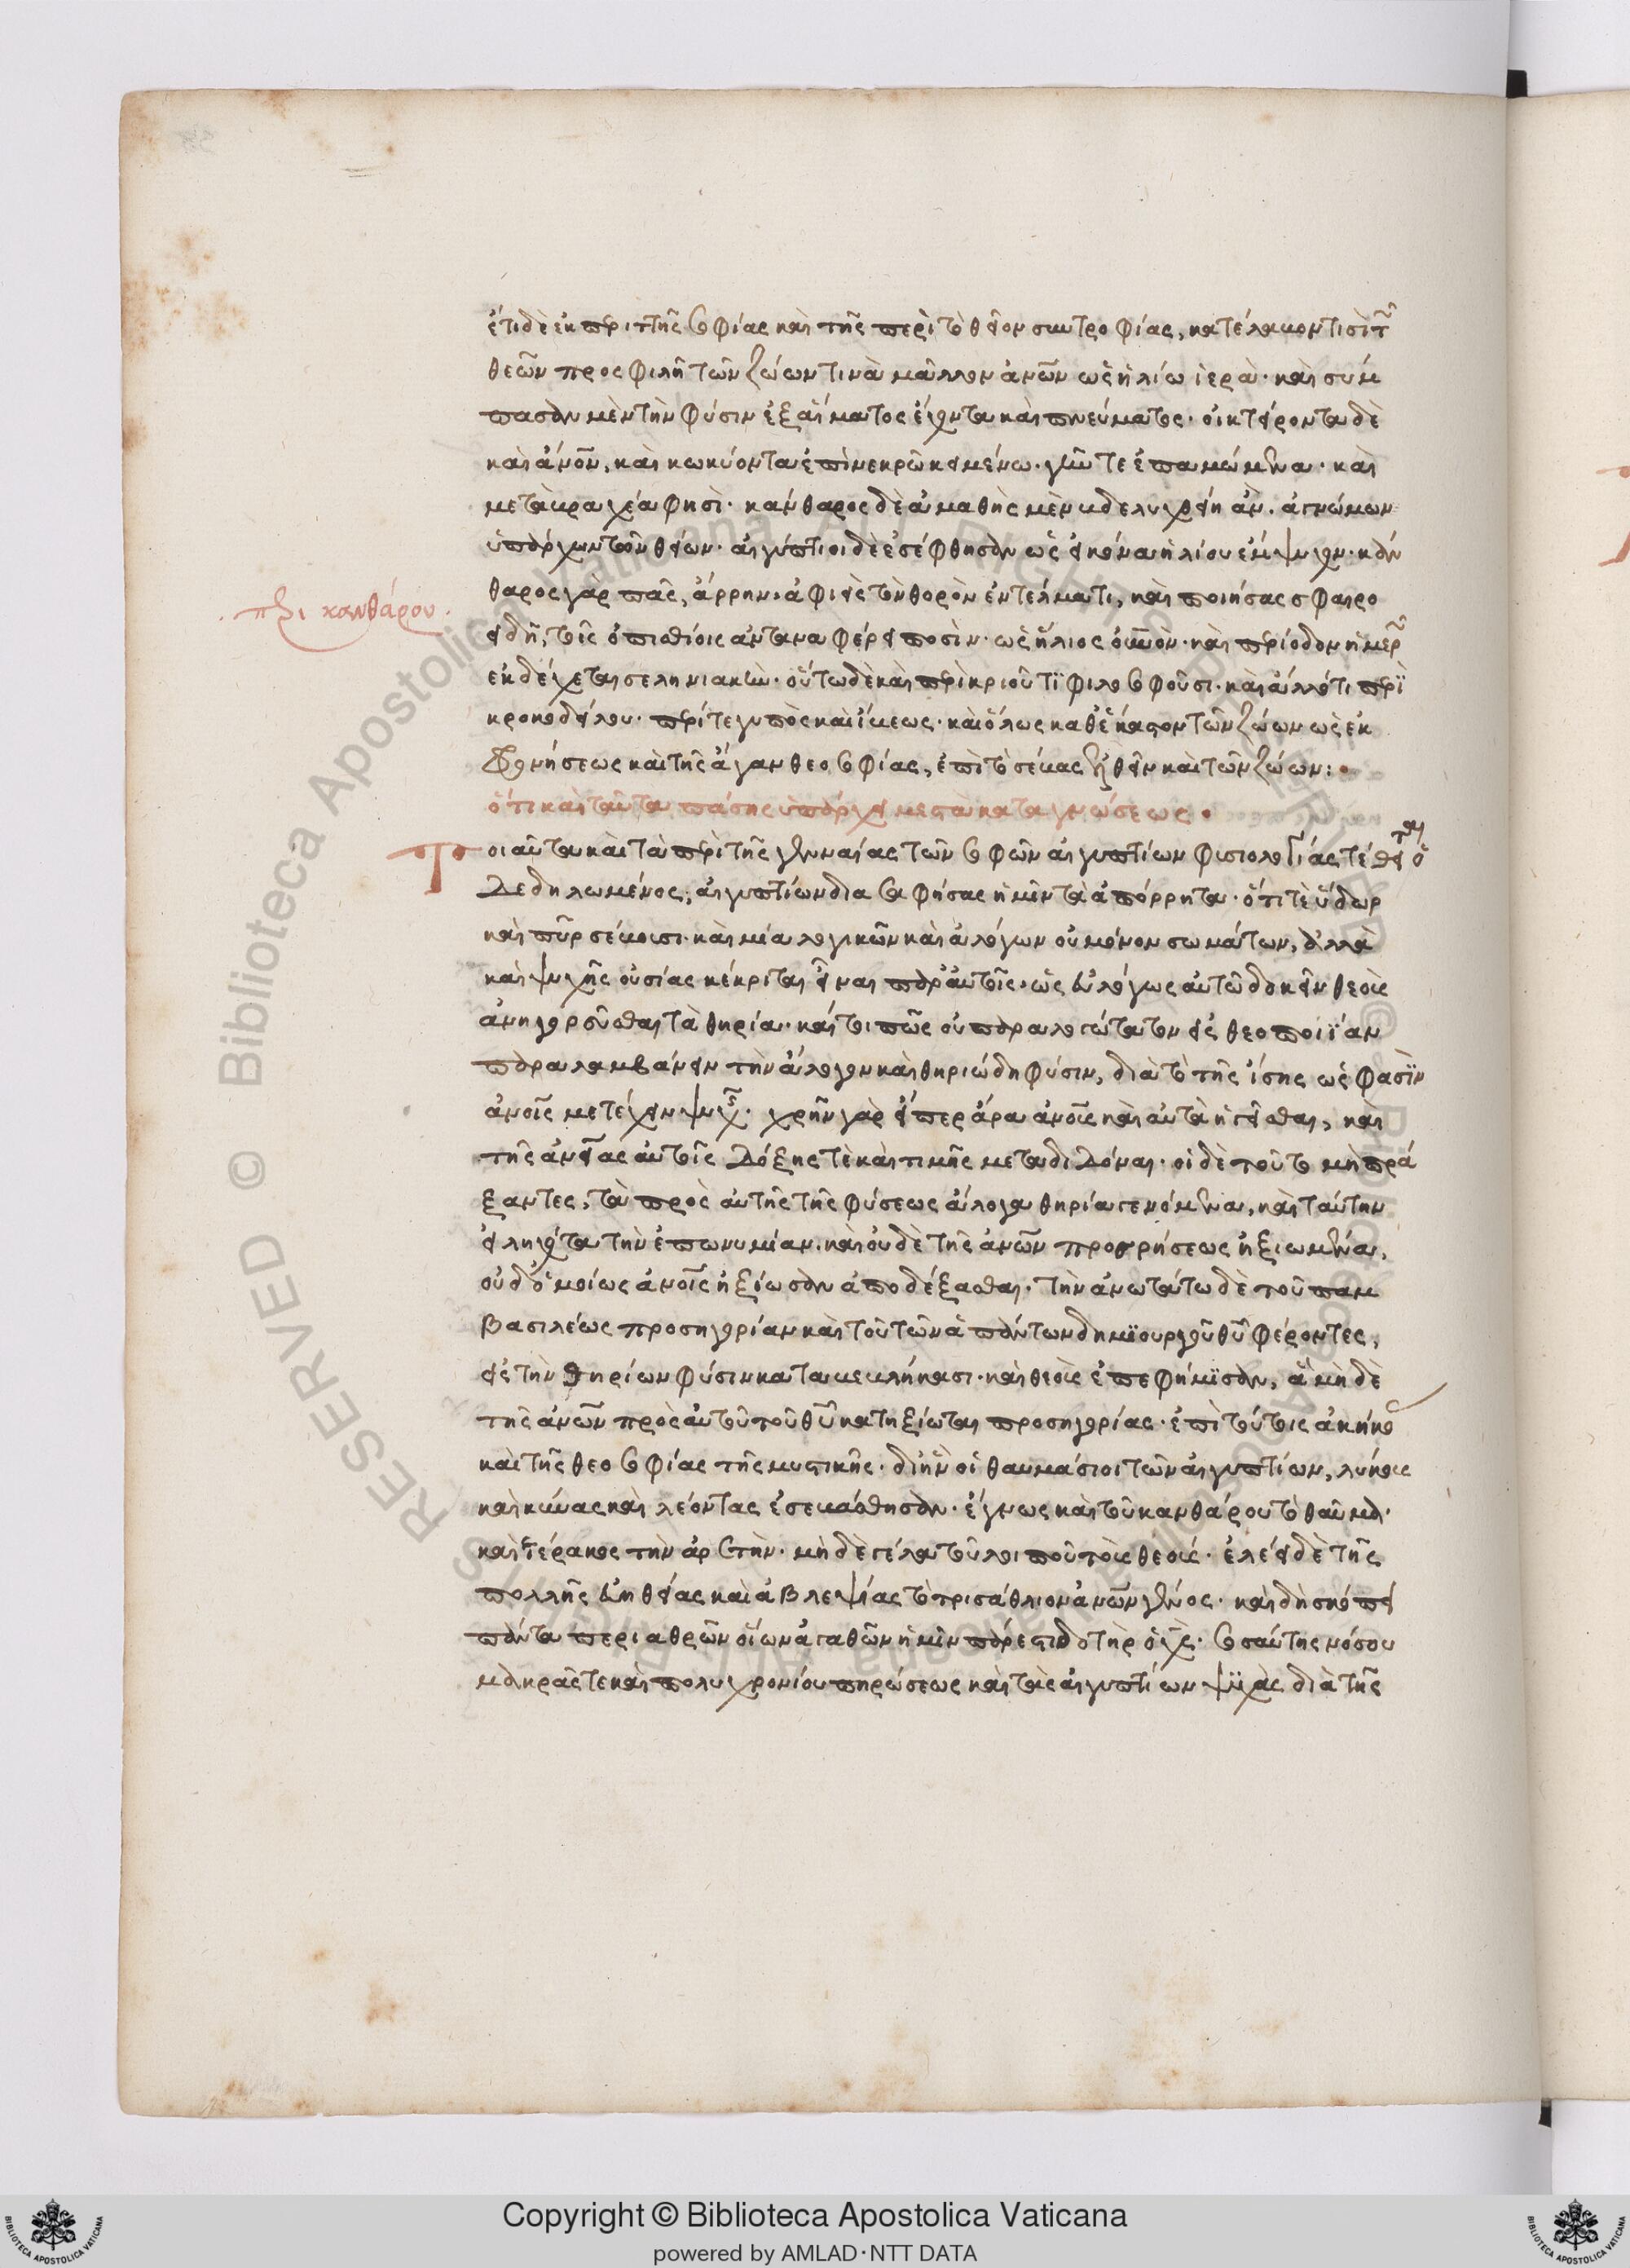 ἔτι δὲ ἐκ περιττῆς σοφίας καὶ τῆς περὶ τὸ θεῖον συντροφίας, κατέλαβον τισὶ τῶν
θεῶν προσφιλῆ τῶν ζώων τινὰ μᾶλλον ἀνῶν ὡς ἡλίω ἱερὰ· καὶ σύμ
πασαν μὲν τὴν φύσιν ἐξ αἵματος ἔχοντα καὶ πνεύματος· οἰκτείροντα δὲ
καὶ ἄνον, καὶ κωκύοντα ἐπὶ νεκρῶ κειμένω. γῆν τε ἐπαμώμενα· καὶ
μετὰ βραχέα φησὶ· κάνθαρος δὲ ἀμαθὴς μὲν βδελυχθείη ἂν. ἀγνώμων
ὑπάρχων τῶν θείων· αἰγύπτιοι δὲ ἐσέφθησαν ὡς εἰκόνα ἡλίου ἔμψυχον· κάν
θαρος γὰρ πᾶς, ἄρρην. ἀφιεὶς τὸν θορὸν ἐν τέλματι, καὶ ποιήσας σφαιρο
ειδῆ, τοῖς ὀπισθίοις ἀνταναφέρει ποσὶν· ὡς ἥλιος οὐνὸν· καὶ περίοδον ἡμερῶν
ἐκδέχεται σεληνιακὴν· οὕτω δὲ καὶ περὶ κριοῦ τϊ φιλοσοφοῦσι· καὶ ἄλλό τι περϊ
κροκοδείλου· περί τε γυπὸς καὶ ἴβεως· καὶ ὅλως καθέκαστον τῶν ζώων ὡς ἐκ
φρονήσεως καὶ τῆς ἄγαν θεοσοφίας, ἐπὶ τὸ σέβας ἐλθεῖν καὶ τῶν ζώων:
ὅτι καὶ ταῦτα πάσης ὑπάρχει μεστὰ καταγνώσεως
Τοιαῦτα καὶ τὰ περὶ τῆς γενναίας τῶν σοφῶν αἰγυπτίων φυσιολογίας τέθειται ὁ
δεδηλωμένος, αἰγυπτίων διασαφήσας ἡμῖν τὰ ἀπόρρητα· ὅτι τὲ ὕδωρ
καὶ πῦρ σέβουσι· καὶ μία λογικῶν καὶ ἀλόγων οὐ μόνον σωμάτων, ἀλλὰ
καὶ ψυχῆς οὐσίας κέκριται εἶναι παρ αὐτοῖς. ὡς εὐλόγως αὐτῶ δοκεῖν θεοὺς
ἀνηγορεῦσθαι τὰ θηρία· καίτοι πῶς οὐ παραλογώτατον εἰς θεοποιΐαν
παραλαμβάνειν τὴν ἄλογον καὶ θηριώδη φύσιν, διὰ τὸ τῆς ἴσης ὡς φασὶν
ἀνοις μετέχειν ψυχῆς· χρῆν γὰρ εἴπερ ἄρα ἀνους καὶ αὐτὰ ἡγεῖσθαι, καὶ
τῆς ἀνείας αὐτοῖς δόξης τὲ καὶ τιμῆς μεταδιδόναι· οἱ δὲ τοῦτο μὴ πρά
ξαντες, τὰ πρὸς αὐτῆς τῆς φύσεως ἄλογα θηρία γενόμενα, καὶ ταύτην
εἰληχότα τὴν ἐπωνυμίαν. καὶ οὐδὲ τῆς ἀνῶν προσρήσεως ἠξιωμένα.
οὐδ ὁμοίως ἀνοις ἠξίωσαν ἀποδέξασθαι· τὴν ἀνωτάτω δὲ τοῦ παμ
βασιλέως προσηγορίαν καὶ τοῦ τῶν ἁπάντων δημϊουργοῦ θῦ φέροντες,
εἰς τὴν θηρίων φύσιν καταβεβλήκασι· καὶ θεοὺς ἐπεφήμϊσαν, ἃ μὴ δὲ
τῆς ἀνῶν πρὸς αὐτοῦ τοῦ θῦ κατηξίωται προσηγορίας· ἐπὶ τούτοις ἀκήκοας
καὶ τῆς θεοσοφίας τῆς μυστικῆς· δι ἣν οἱ θαυμάσιοι τῶν αἰγυπτίων, λύκους
καὶ κύνας καὶ λέοντας ἐσεβάσθησαν· ἔγνως καὶ τοῦ κανθάρου τὸ θαῦμα·
καὶ ἱέρακος τὴν ἀρετὴν· μὴ δὲ γέλα τοῦ λοιποῦ τοὺς θεοὺς· ἐλέει δὲ τῆς
πολλῆς εὐηθείας καὶ ἀβλεψίας τὸ τρισάθλιον ἀνῶν γένος· καὶ δὴ σκόπει
πάντα περιαθρῶν οἵων ἀγαθῶν ἡμῖν πάρεστι δοτὴρ ὁ χς· ὁ σαύτης νόσου
μακρᾶς τε καὶ πολυχρονίου πηρώσεως καὶ τὰς αἰγυπτίων ψϋχὰς διὰ τῆς
περι κανθάρου.
RESERVED © Biblioteca Apostolica Vaticana
Copyright © Biblioteca Apostolica Vaticana
powered by AMLAD·NTT DATA